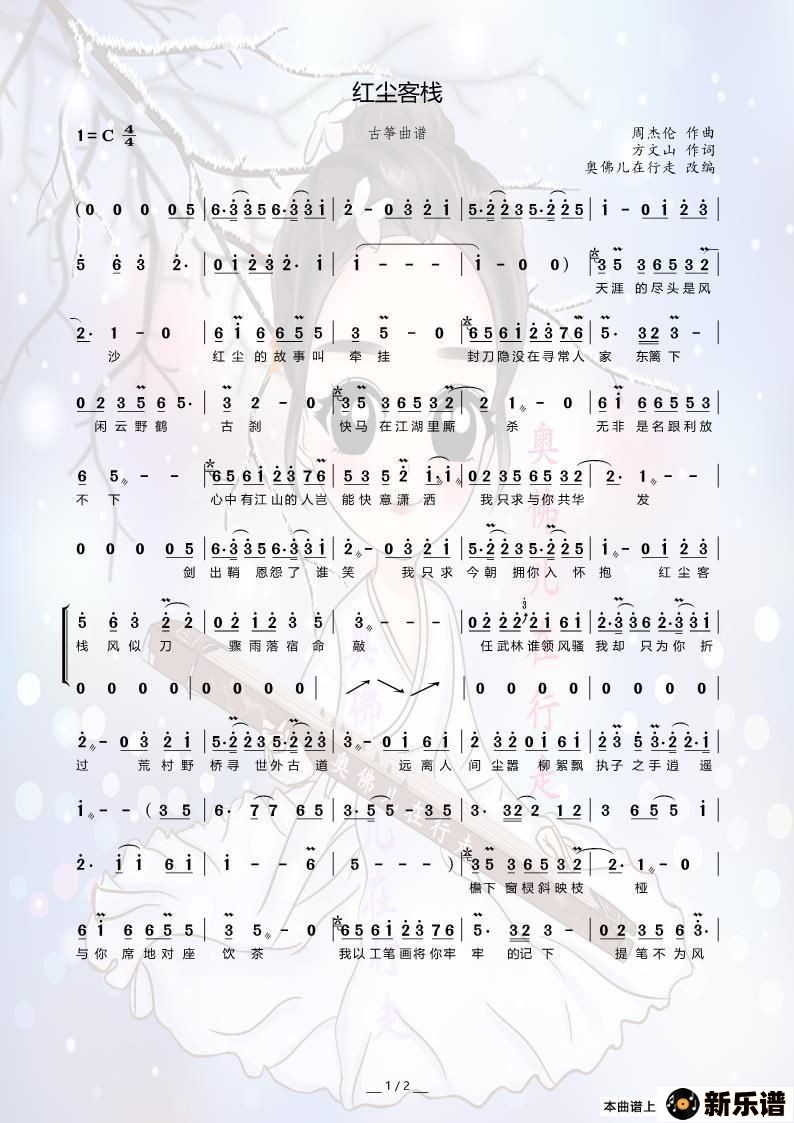 红尘客栈
1=C 4/4
古筝曲谱
周杰伦 作曲
方文山 作词
奥佛儿在行走 改编
(0 0 0 0 5 | 6·3 3 5 6·3 3 1 | 2 - 0 3 2 1 | 5·2 2 3 5·2 2 5 | 1 - 0 1 2 3 |
5 6 3 2· | 0 1 2 3 2· 1 | 1 - - - | 1 - 0 0 ) | 3 5 3 6 5 3 2 |
天涯 的尽头是风
2· 1 - 0 | 6 1 6 6 5 5 | 3 5 - 0 | 6 5 6 1 2 3 7 6 | 5· 3 2 3 - |
沙 红尘的故事叫 牵挂 封刀隐没在寻常人 家 东篱下
0 2 3 5 6 5· | 3 2 - 0 | 3 5 3 6 5 3 2 | 2 1 - 0 | 6 1 6 6 5 5 3 |
闲云野鹤 古刹 快马 在江湖里厮 杀 无非 是名跟利放
6 5 - - | 6 5 6 1 2 3 7 6 | 5 3 5 2 1 1 | 0 2 3 5 6 5 3 2 | 2· 1 - - |
不下 心中有江山的人岂 能快意潇洒 我只求与你共华 发
0 0 0 0 5 | 6·3 3 5 6·3 3 1 | 2 - 0 3 2 1 | 5·2 2 3 5·2 2 5 | 1 - 0 1 2 3 |
剑 出鞘 恩怨了 谁 笑 我只求 今朝 拥你入 怀 抱 红尘客
5 6 3 2 2 | 0 2 1 2 3 5 | 3 - - - | 0 2 2 2 2 1 6 1 | 2·3 3 6 2·3 3 5 |
栈 风似刀 骤雨落宿命 敲 任武林谁领风骚 我却 只为你 折
0 0 0 0 | 0 0 0 0 | | 0 0 0 0 | 0 0 0 0 |
2 - 0 3 2 1 | 5·2 2 3 5·2 2 3 | 3 - 0 1 6 1 | 2 3 2 0 1 6 1 | 2 3 5 3·2 2 |
过 荒村野 桥寻 世外古 道 远离人 间尘嚣 柳絮飘 执子之手逍遥
1 - - (3 5 | 6· 7 7 6 5 | 3·5 5 - 3 5 | 3· 3 2 2 1 2 | 3 6 5 5 1 |
2· 1 1 6 1 | 1 - - 6 | 5 - - - ) | 3 5 3 6 5 3 2 | 2· 1 - 0 |
檐下 窗棂斜映枝 桠
6 1 6 6 5 5 | 3 5 - 0 | 6 5 6 1 2 3 7 6 | 5· 3 2 3 - | 0 2 3 5 6 5· |
与你 席地对座 饮茶 我以工笔画将你牢 牢 的记下 提笔不为风
奥佛儿在行走
奥佛儿在行走
奥佛儿在行走
1 / 2
本曲谱上
新乐谱